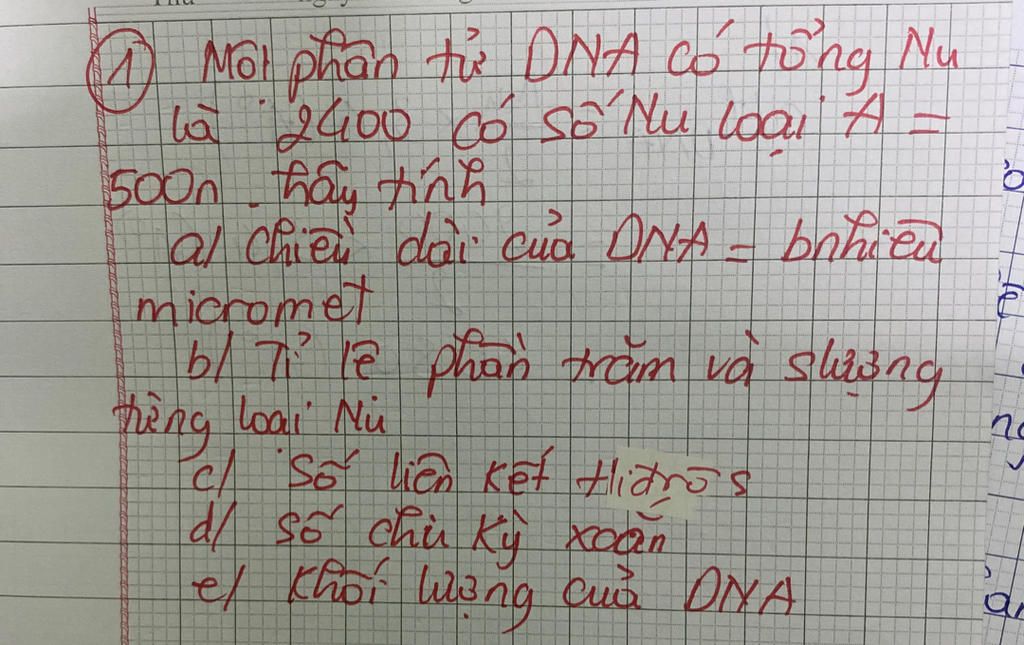 ① Một phân tử DNA có tổng Nu
là 2400 có số Nu loại A =
500n. hãy tính
a/ chiều dài của DNA = bnhiêu
micromet
b/ Tỉ lệ phần trăm và slượng
từng loại Nu
c/ Số liên kết Hiđrô s
d/ số chu kỳ xoắn
e/ Khối lượng của DNA